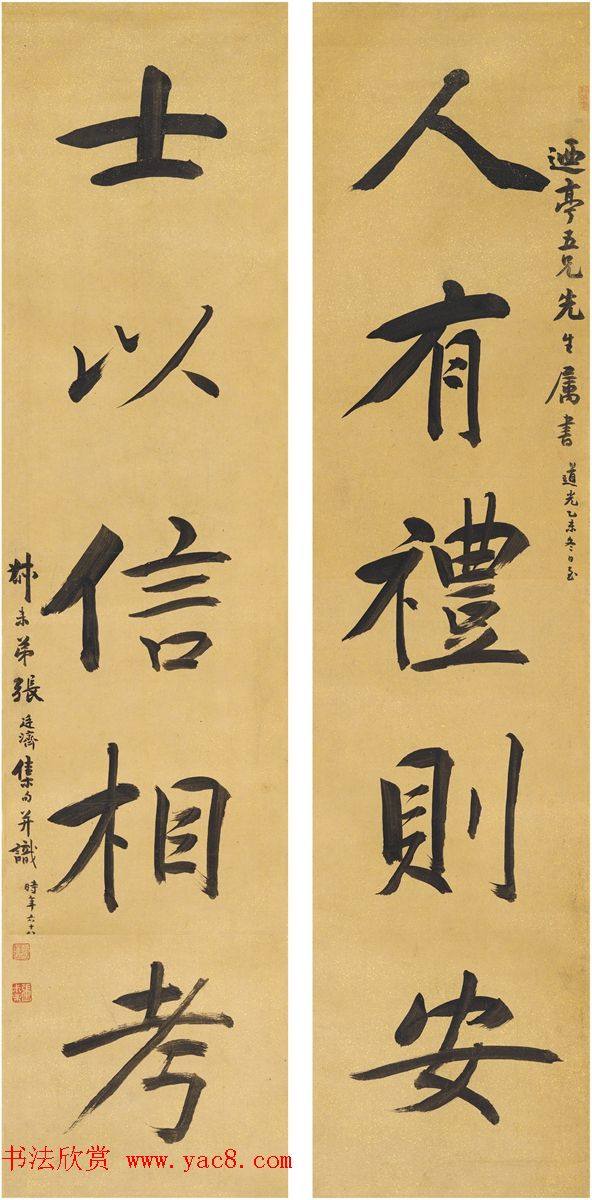 人有禮則安
迺亭五兄先生屬書
道光乙未冬日至
士以信相考
叔未弟張廷濟集句并識
時年六十八
书法欣赏 www.yac8.com